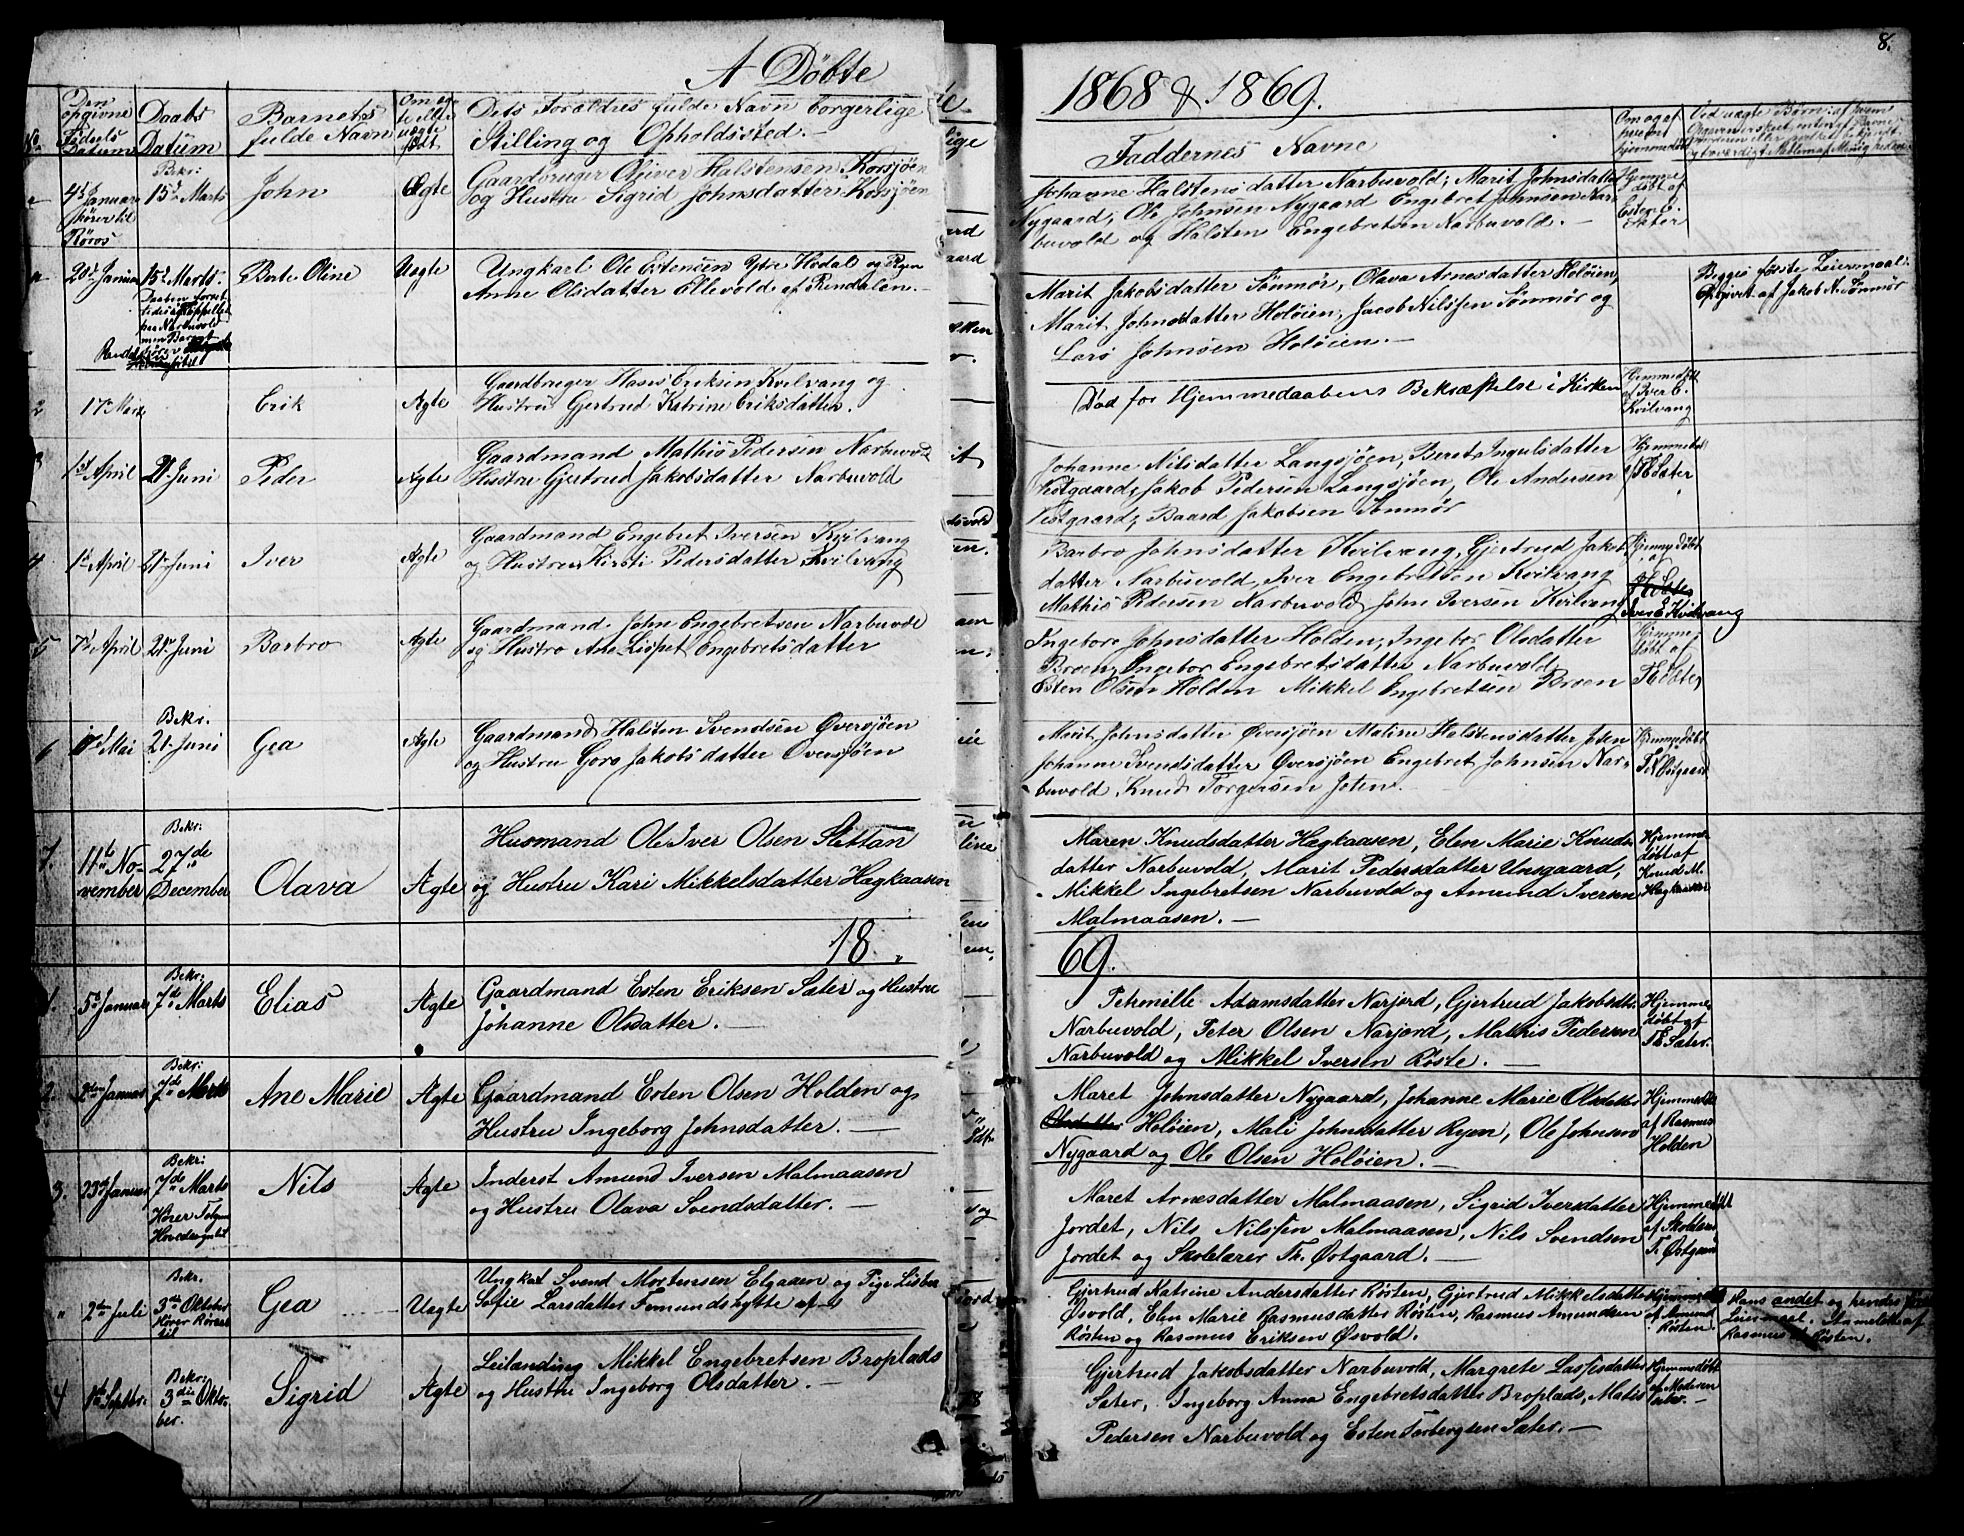 A Döbte
Den opgivne Födsels Datum
Daabs Datum
Barnets fulde Navn
Om ægte eller uægte født
Dets Forældres fulde Navn borgerlige
Stilling og Opholdssted.
4de Januar hører til Röros
Bekr: 15de Marts
John
Ægte
Gaardbruger Oliver Halstensen Korssjøen
og Hustru Sigrid Johnsdatter Korsjøen
20de Januar
15de Marts
Berte Oline
Uægte
Ungkarl Ole Estensen Ytre Hodal og Pigen
Anne Olsdatter Ellevold af Rendalen.
2
17de Marts
Erik
Ægte
Gaardbruger Hans Eriksen Kvilvang og
Hustru Gjertrud Katrine Eriksdatter.
3
1st April
21de Juni
Peder
Ægte
Gaardmand Mathis Pedersen Narbuvold
Hustru Gjertrud Jakobsdatter Narbuvold
4
1st April
21de Juni
Iver
Ægte
Gaardmand Engebret Iversen Kvilvang
og Hustru Kirsti Pedersdatter Kvilvang
5
7de April
21de Juni
Barbro
Ægte
Gaardmand John Engebretsen Narbuvold
og Hustru Ane Lispet Engebretsdatter
6
Mai
Bekr. 21de Juni
Gea
Ægte
Gaardmand Halsten Svendsen Øversjøen
og Hustru Goro Jakobsdatter Øversjøen
7.
11te November
Bekr: 27de December
Olava
Ægte
Husmand Ole Iver Olsen Slettan
og Hustru Kari Mikkelsdatter Hagkaasen
18
1.
5te Januar
Bekr: 7de Marts
Elias
Ægte
Gaardmand Esten Eriksen Sater og Hustru
Johanne Olsdatter.
2.
2den Januar
Bekr: 7de Marts
Ane Marie
Ægte
Gaardmand Esten Olsen Holden og
Hustru Ingeborg Johnsdatter.
3.
23de Januar
Bekr: 7de Marts
Hører Tolgen Hovedsogn til
Nils
Ægte
Inderst Amund Iversen Malmaasen
og Hustru Olava Svendsdatter.
"
2den Juli
Bekr. 3die Oktober Hører Röros til
Gea
Uægte
Ungkal Svend Mortensen Elgaaen og Pige Lisbet
Sofie Larsdatter Femundshytte
4
1te Septbr.
Bekr: 3die Oktober.
Sigrid
Ægte
Leilænding Mikkel Engebretsen Broplads
og Hustru Ingeborg Olsdatter.
8.
1868 & 1869.
Faddernes Navne
Om og af hvem hjemmedöbt
Ved uægte Børn: af hvem
Johanne Halstensdatter Narbuvold, Marit Johnsdatter
Nygaard, Ole Johnsen Nygaard Engebret Johnsen Nar-
buvold og Halsten Engebretsen Narbuvold.
Hjemme döbt af Esten E. Sater
Marit Jakobsdatter Sömmör, Olava Arnesdatter Holöien,
Marit Johnsdatter Holöien, Jacob Nilssen Sömmör og
Lars Johnsen Holöien.
Begges første Leiermaal.
Opgivet af Jakob N. Sömmör
Död før Hjemmedaabens Bekræftelse i Kirken
Hjemmedöbt af Iver E. Kvilvang
Johanne Nilsdatter Langsjøen, Beret Ingulsdatter
Vestgaard, Jakob Pedersen Langsjøen, Ole Andersen
Vestgaard, Baard Jakobsen Sömmör
Barbro Johnsdatter Kvilvang, Gjertrud Jakobs
datter Narbuvold, Iver Engebretsen Kvilvang
Mathis Pedersen Narbuvold, John Iversen Kvilvang
Hjemmedöbt af
Iver E Kvilvang
Ingebore Johnsdatter Holden, Ingebor Olsdatter
Broen, Ingebor Engebretsdatter Narbuvold,
Esten Olsen Holden Mikkel Engebretsen Broen
Hjemme döbt af
Marit Johnsdatter Øversjøen Maline Halstensdatter Joten
Johanne Svendsdatter Øversjøen Engebret Johnsen Nar-
buvold Knud Torgersen Joten.
Hjemmedöbt
Maren Knudsdatter Hagkaasen, Elen Marie Knuds
datter Narbuvold, Marit Pedersdatter Unsgaard,
Mikkel Ingebretsen Narbuvold og Amund Iversen
Malmaasen.
Hjemme döbt af Knud M. Hagkaasen
69.
Petrnille Adamsdatter Narjord, Gjertrud Jakobsdt:
Narbuvold, Peter Olsen Narjord, Mathis Pedersen
Narbuvold og Mikkel Iversen Röste.
Hjemme döbt af T E Sater.
Maret Johnsdatter Nygaard, Johanne Marie Olsdatter
Olsdatter Holöien, Mali Johnsdatter Ryen, Ole Johnsen
Nygaard og Ole Olsen Holöien.
Hjemmedöbt af Rasmus Holden
Maret Arnesdatter Malmaasen, Sigrid Iversdatter
Jordet, Nils Nilssen Malmaasen, Nils Svendsen
Jordet og Skolelærer Th. Østgaard.
Hjemmedöbt af Skolelærer T. Østgaard
Gjertrud Katrine Andersdatter Rösten, Gjertrud Mikkelsdatter
Øsvold, Elen Marie Rasmusdatter Rösten, Rasmus Amundsen
Rösten og Rasmus Eriksen Øsvold.
Hjemmedöbt af Amund Rösten.
Hans andet og hendes
Leiermaal. Anmeldt af
Rasmus Rösten.
Gjertrud Jakobsdatter Narbuvold, Margrete Lassesdatter
Sater, Ingeborg Anna Engebretsdatter Broplads, Matis
Pedersen Narbuvold og Esten Torbergsen Sater.
Hjemmedöbt af Moderen